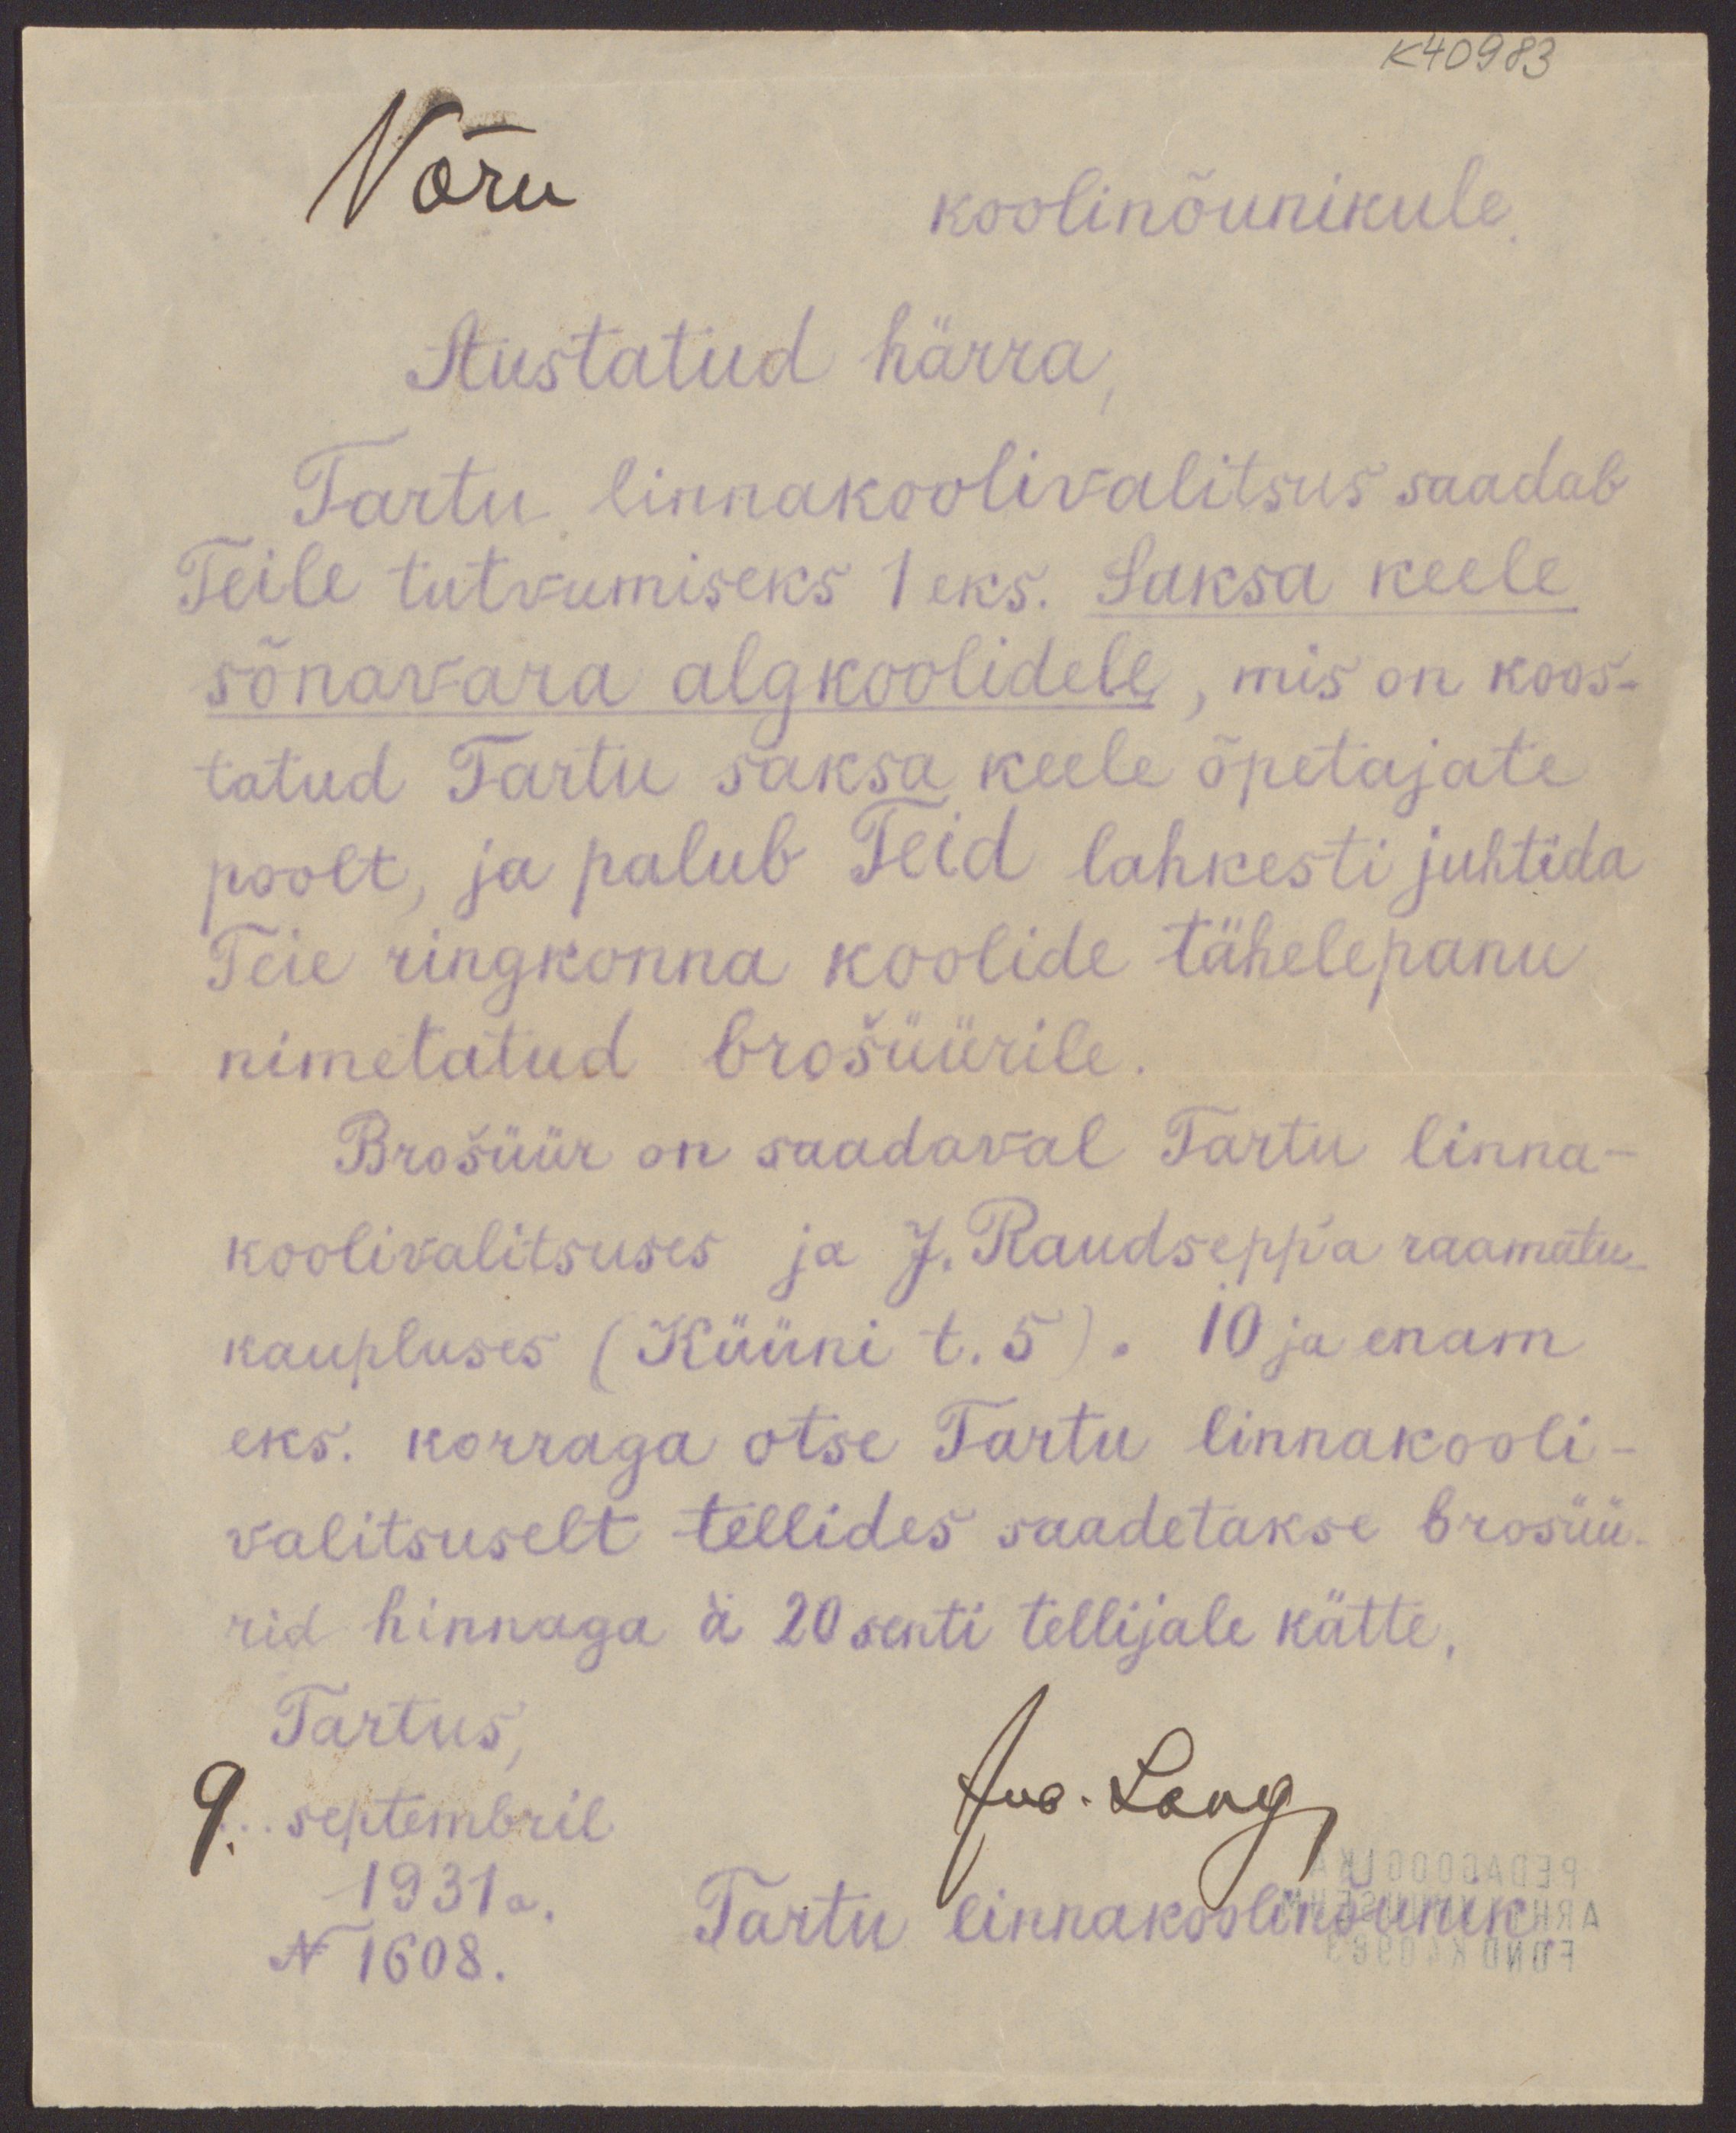 K40983
Võru
koolinõunikule.
Austatud härra,
Tartu linnakoolivalitsus saadab
Teile tutvumiseks 1 eks. Saksa keele
sõnavara algkoolidele, mis on koos-
tatud Tartu saksa keele õpetajate
poolt, ja palub Teid lahkesti juhtida
Teie ringkonna koolide tähelepanu
nimetatud brošüürile.
Brošüür on saadaval Tartu linna-
koolivalitsuses ja J. Raudsepp'a raamatu-
kaupluses (Küüni t. 5). 10 ja enam
eks. korraga otse Tartu linnakooli-
valitsuselt tellides saadetakse brosüü-
rid hinnaga à 20 senti tellijale kätte.
Tartus,
9. septembril
1931 a.
N 1608.
Lang
Tartu linnakoolinõunik.
PEDAGOOGIKA
FOND K40983